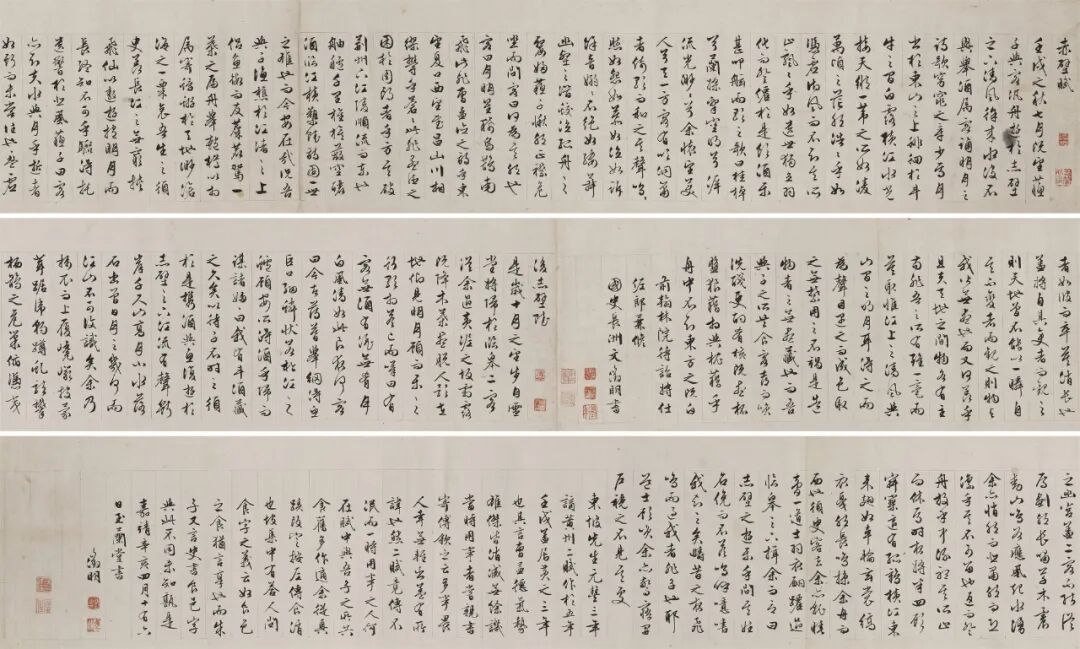 赤壁賦
壬戌之秋七月既望蘇
子與客泛舟遊於赤壁
之下清風徐來水波不
興舉酒屬客誦明月之
詩歌窈窕之章少焉月
出於東山之上徘徊於斗
牛之間白露橫江水光
接天縱一葦之所如凌
萬頃之茫然浩浩乎如
馮虛御風而不知其所
止飄飄乎如遺世獨立羽
化而登僊於是飲酒樂
甚扣舷而歌之歌曰桂棹
兮蘭槳擊空明兮泝
流光渺渺兮余懷望美
人兮天一方客有吹洞簫
者倚歌而和之其聲嗚
嗚然如怨如慕如泣如訴
餘音嫋嫋不絕如縷舞
幽壑之潛蛟泣孤舟之
嫠婦蘇子愀然正襟危
坐而問客曰何為其然也
客曰月明星稀烏鵲南
飛此非曹孟德之詩乎東
望夏口西望武昌山川相
繆鬱乎蒼蒼此非孟德之
困於周郎者乎方其破
荊州下江陵順流而東也
舳艫千里旌旗蔽空釃
酒臨江橫槊賦詩固一世
之雄也而今安在哉況吾
與子漁樵於江渚之上
侶魚蝦而友麋鹿駕一
葉之扁舟舉匏樽以相
屬寄蜉蝣於天地渺滄
海之一粟哀吾生之須
臾羨長江之無窮挾
飛仙以遨遊抱明月而
長終知不可乎驟得託
遺響於悲風蘇子曰客
亦知夫水與月乎逝者
如斯而未嘗往也盈虛
者如彼而卒莫消長也
蓋將自其變者而觀之
則天地曾不能以一瞬自
其不變者而觀之則物與
我皆無盡也而又何羨乎
且夫天地之間物各有主
苟非吾之所有雖一毫而
莫取惟江上之清風與
山間之明月耳得之而
為聲目遇之而成色取
之無禁用之不竭是造
物者之無盡藏也而吾
與子之所共食客喜而笑
洗盞更酌肴核既盡杯
盤狼藉相與枕藉乎
舟中不知東方之既白
前翰林院待詔將仕
佐郎兼修
國史長洲文徵明書
後赤壁賦
是歲十月之望步自雪
堂將歸於臨皋二客
從余過黃泥之坂霜露
既降木葉盡脫人影在
地仰見明月顧而樂之
行歌相答已而嘆曰有
客無酒有酒無肴月
白風清如此良夜何客
曰今者薄暮舉網得魚
巨口細鱗狀如松江之
鱸顧安所得酒乎歸而
謀諸婦婦曰我有斗酒藏
之久矣以待子不時之須
於是攜酒與魚復遊於
赤壁之下江流有聲斷
岸千尺山高月小水落
石出曾日月之幾何而
江山不可復識矣余乃
攝衣而上履巉巖披蒙
茸踞虎豹登虬龍攀
棲鶻之危巢俯馮夷
之幽宮蓋二客不能從
焉劃然長嘯草木震
動山鳴谷應風起水湧
余亦悄然而悲肅然而恐
凜乎其不可留也反而登
舟放乎中流聽其所止
而休焉時夜將半四顧
寂寥適有孤鶴橫江東
來翅如車輪玄裳縞
衣戛然長鳴掠余舟而
西也須臾客去余亦就睡
夢一道士羽衣翩躚過
臨皋之下揖余而言曰
赤壁之遊樂乎問其姓
名俛而不答嗚呼噫嘻
我知之矣疇昔之夜飛
鳴而過我者非子也耶
道士顧笑余亦驚寤開
戶視之不見其處
東坡先生元豐三年
謫黃州二賦作於五年
壬戌蓋居黃之三年
也其言曹孟德氣勢
雄傑皆消滅無餘譏
當時用事者嘗親書
寄傅欽之云多事畏
人幸無輕出蓋有所
諱也然二賦竟傳不
泯而一時用事之人何
在賦中與吾子之所共
食舊多作適余從其
跋改定按左傳食消
也坡集中有答人問
食字之義云如食邑
之食猶言享也而朱
子又言史書食邑字
與此不同未知孰是
嘉靖辛亥四月十有六
日玉蘭堂書
徵明